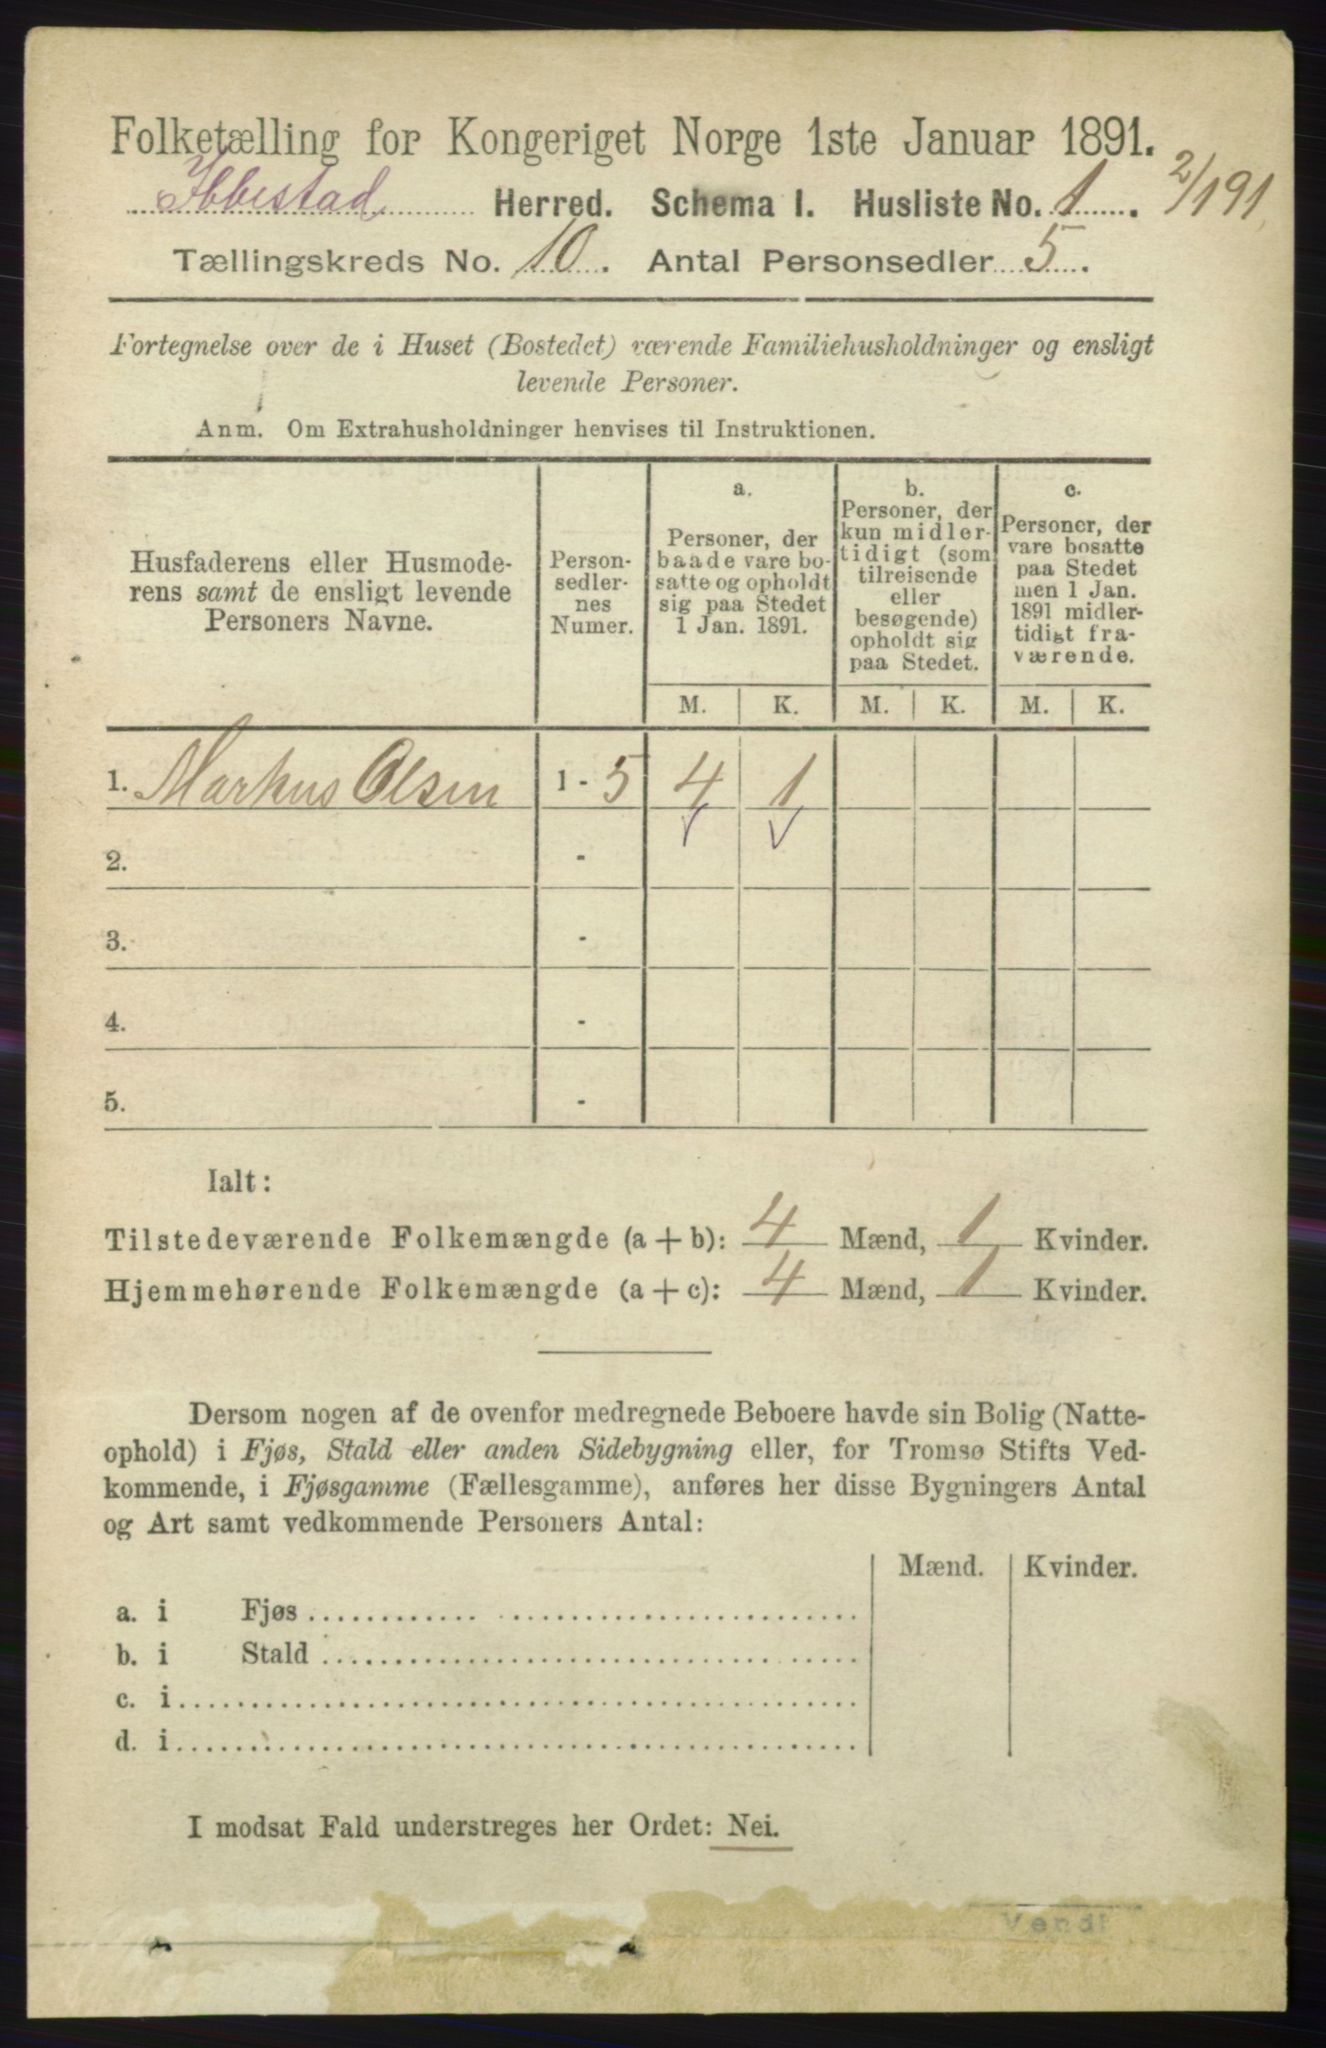 Folketælling for Kongeriget Norge 1ste Januar 1891.
Ibbestad Herred. Schema I. Husliste No. 1. 2/191
Tællingskreds No. 10. Antal Personsedler 5.
Fortegnelse over de i Huset (Bostedet) værende Familiehusholdninger og ensligt
levende Personer.
Anm. Om Extrahusholdninger henvises til Instruktionen.
Husfaderens eller Husmode-
rens samt de ensligt levende
Personers Navne.
Person-
sedler-
nes
Numer.
a.
Personer, der
baade vare bo-
satte og opholdt
sig paa Stedet
1 Jan. 1891.
b.
Personer, der
kun midler-
tidigt (som
tilreisende
eller
besøgende)
opholdt sig
paa Stedet.
c.
Personer, der
vare bosatte
paa Stedet
men 1 Jan.
1891 midler-
tidigt fra-
værende.
M. K. M. K. M. K.
1. Markus Olsen 1 - 5 4 1
2. -
3. -
4. -
5. -
Ialt:
Tilstedeværende Folkemængde (a + b): 4 Mænd, 1 Kvinder.
Hjemmehørende Folkemængde (a + c): 4 Mænd, 1 Kvinder.
Dersom nogen af de ovenfor medregnede Beboere havde sin Bolig (Natte-
ophold) i Fjøs, Stald eller anden Sidebygning eller, for Tromsø Stifts Ved-
kommende, i Fjøsgamme (Fællesgamme), anføres her disse Bygningers Antal
og Art samt vedkommende Personers Antal:
Mænd. Kvinder.
a. i Fjøs
b. i Stald
c. i
d. i
I modsat Fald understreges her Ordet: Nei.
Vend!